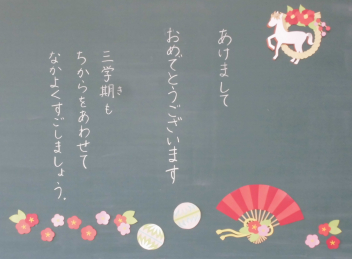 あけまして
おめでとうございます
三学期も
ちからをあわせて
なかよくすごしましょう。